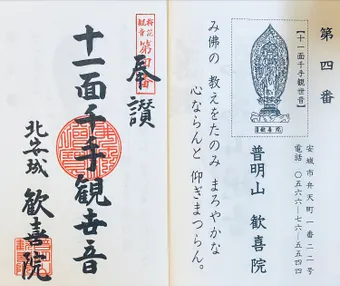 第四番
安城市弁天町一番二二号
電話 〇五六六―七六―五五四四
【十一面千手観世音】
歓喜院
普明山 歓喜院
み佛の 教えをたのみ まろやかな
心ならんと 仰ぎまつらん。
奉讃
第四番
十一面千手観世音
北安城 歓喜院